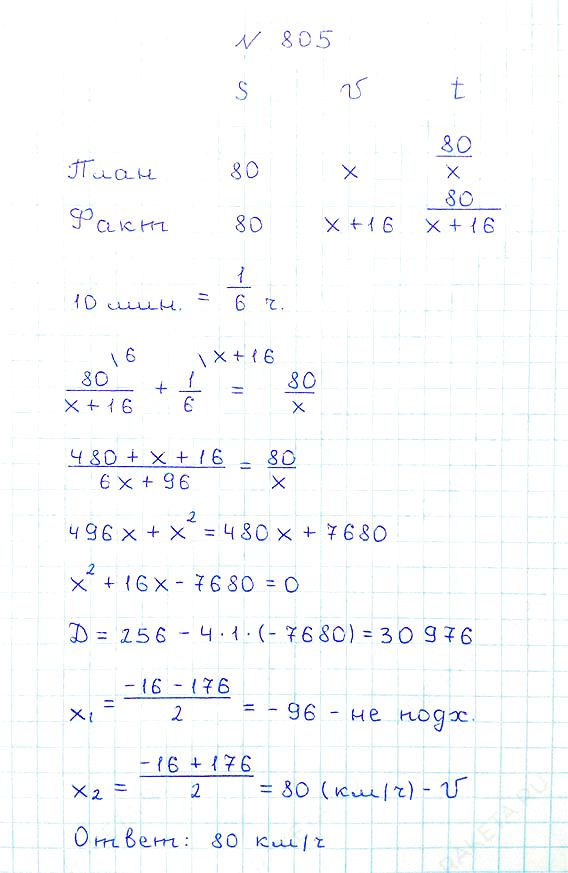 N 805
S v t
План 80 x 80/x
Факт 80 x+16 80/(x+16)
10 мин. = 1/6 ч.
80/(x+16) \6 + 1/6 \x+16 = 80/x
(480+x+16)/(6x+96) = 80/x
496x + x² = 480x + 7680
x² + 16x - 7680 = 0
D = 256 - 4·1·(-7680) = 30976
x₁ = (-16-176)/2 = -96 - не подх.
x₂ = (-16+176)/2 = 80 (км/ч) - v
Ответ: 80 км/ч